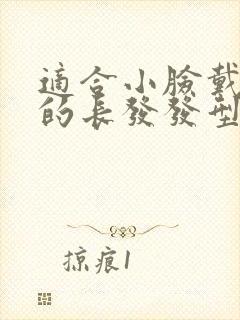 適合小臉戴
的長發發型
掠痕1